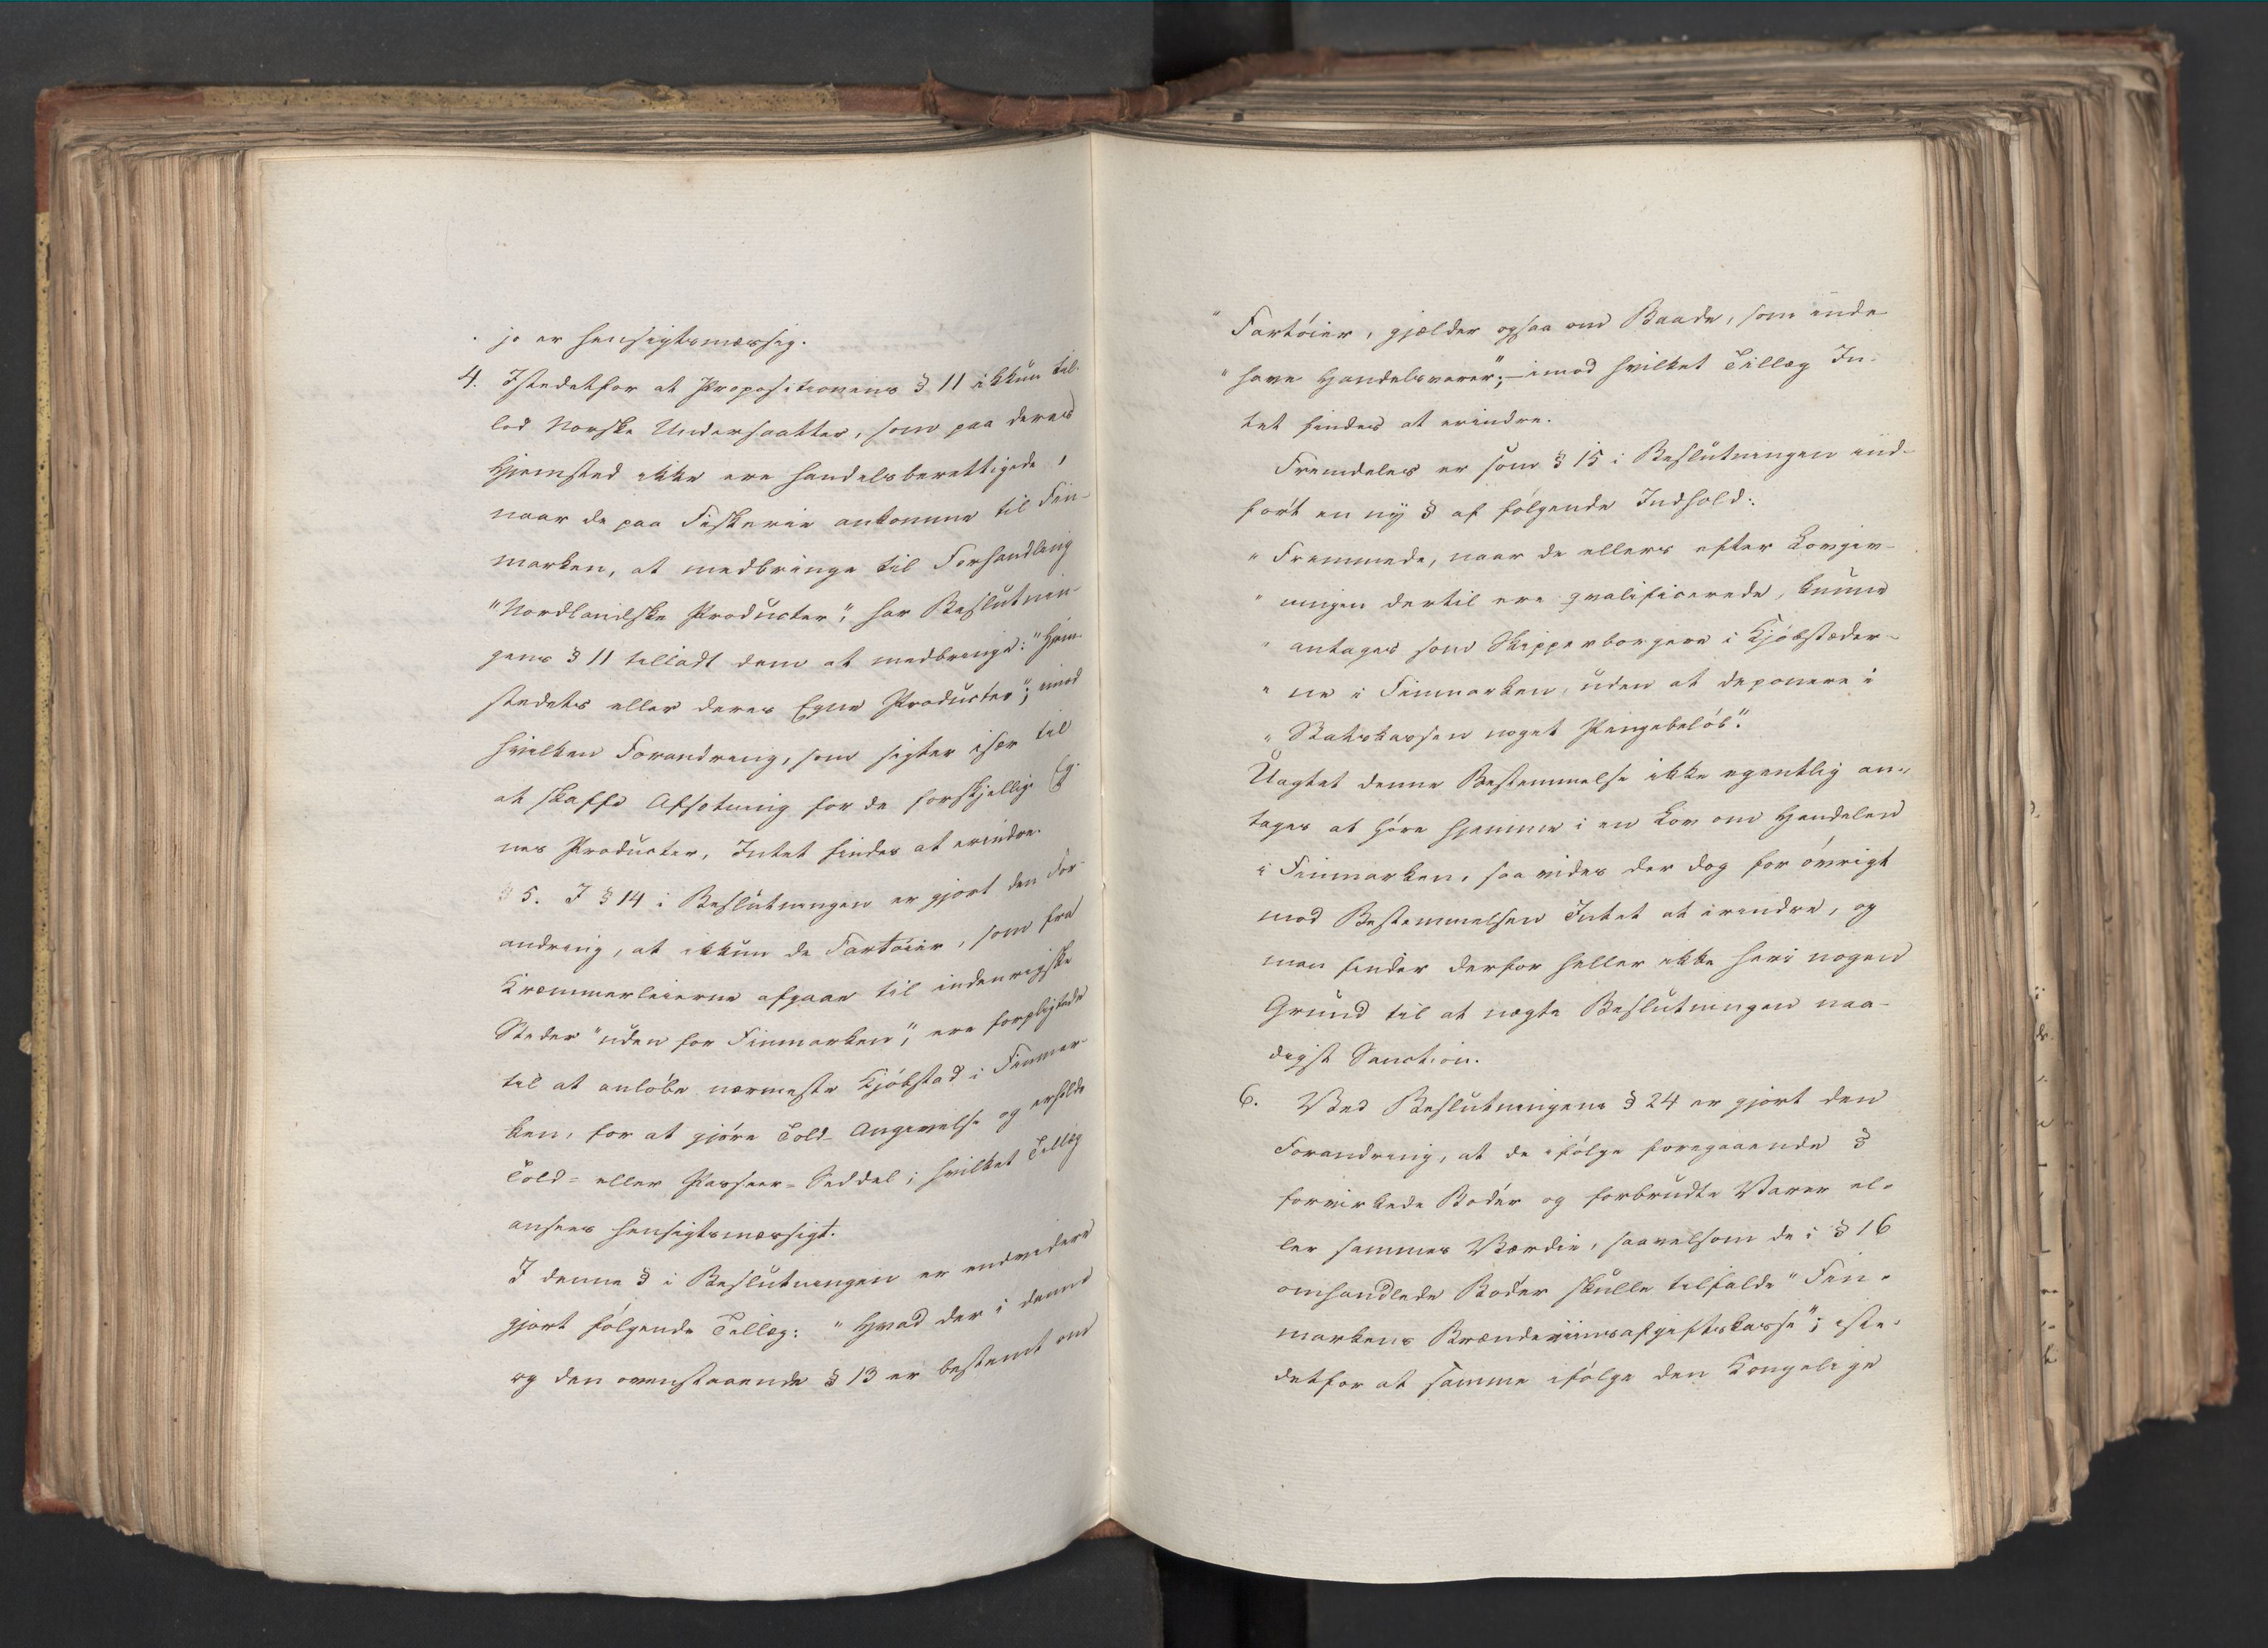 jo er hensigtsmæssig.
4. Istedetfor at Propositionens § 11 ikkun til-
lod Norske Undersaatter, som paa deres
Hjemsted ikke ere handelsberettigede,
naar de paa Fiskerie ankomme til Fin-
marken, at medbringe til Forhandling
"Nordlandske Producter", har Beslutnin-
gens § 11 tilladt dem at medbringe: "Hjem-
stedets eller deres Egne Producter"; imod
hvilken Forandring, som sigter især til
at skaffe Afsætning for de forskjellige Eg-
nes Producter, Intet findes at erindre.
5. I § 14 i Beslutningen er gjort den For-
andring, at ikkun de Fartøier, som fra
Kræmmerleierne afgaae til indenrigske
Steder "uden for Finmarken", ere forpligtede
til at anløbe nærmeste Kjøbstad i Finmar-
ken, for at gjøre Told-Angivelse og erholde
Told- eller Passeer-Seddel; hvilket Tillæg
ansees hensigtsmæssigt.
I denne § i Beslutningen er endvidere
gjort følgende Tillæg: "Hvad der i denne
og den ovenstaaende § 13 er bestemt om
"Fartøier, gjælder ogsaa om Baade, som inde-
"have Handelsvarer"; – imod hvilket Tillæg In-
tet findes at erindre.
Fremdeles er som § 15 i Beslutningen ind-
ført en ny § af følgende Indhold:
"Fremmede, naar de ellers efter Lovgiv-
"ningen dertil ere qvalificerede, kunne
"antages som Skipperborgere i Kjøbstæder-
"ne i Finmarken, uden at deponere i
"Statskassen noget Pengebeløb."
Uagtet denne Bestemmelse ikke egentlig an-
tages at høre hjemme i en Lov om Handelen
i Finmarken, saa vides der dog for øvrigt
mod Bestemmelsen Intet at erindre, og
man finder derfor heller ikke heri nogen
Grund til at nægte Beslutningen naa-
digst Sanction.
6. Ved Beslutningens § 24 er gjort den
Forandring, at de ifølge foregaaende §
forvirkede Bøder og forbrudte Varer el-
ler sammes Værdie, saavelsom de i § 16
omhandlede Bøder skulle tilfalde "Fin-
markens Brændeviinsafgiftskasse"; iste-
detfor at samme ifølge den Kongelige